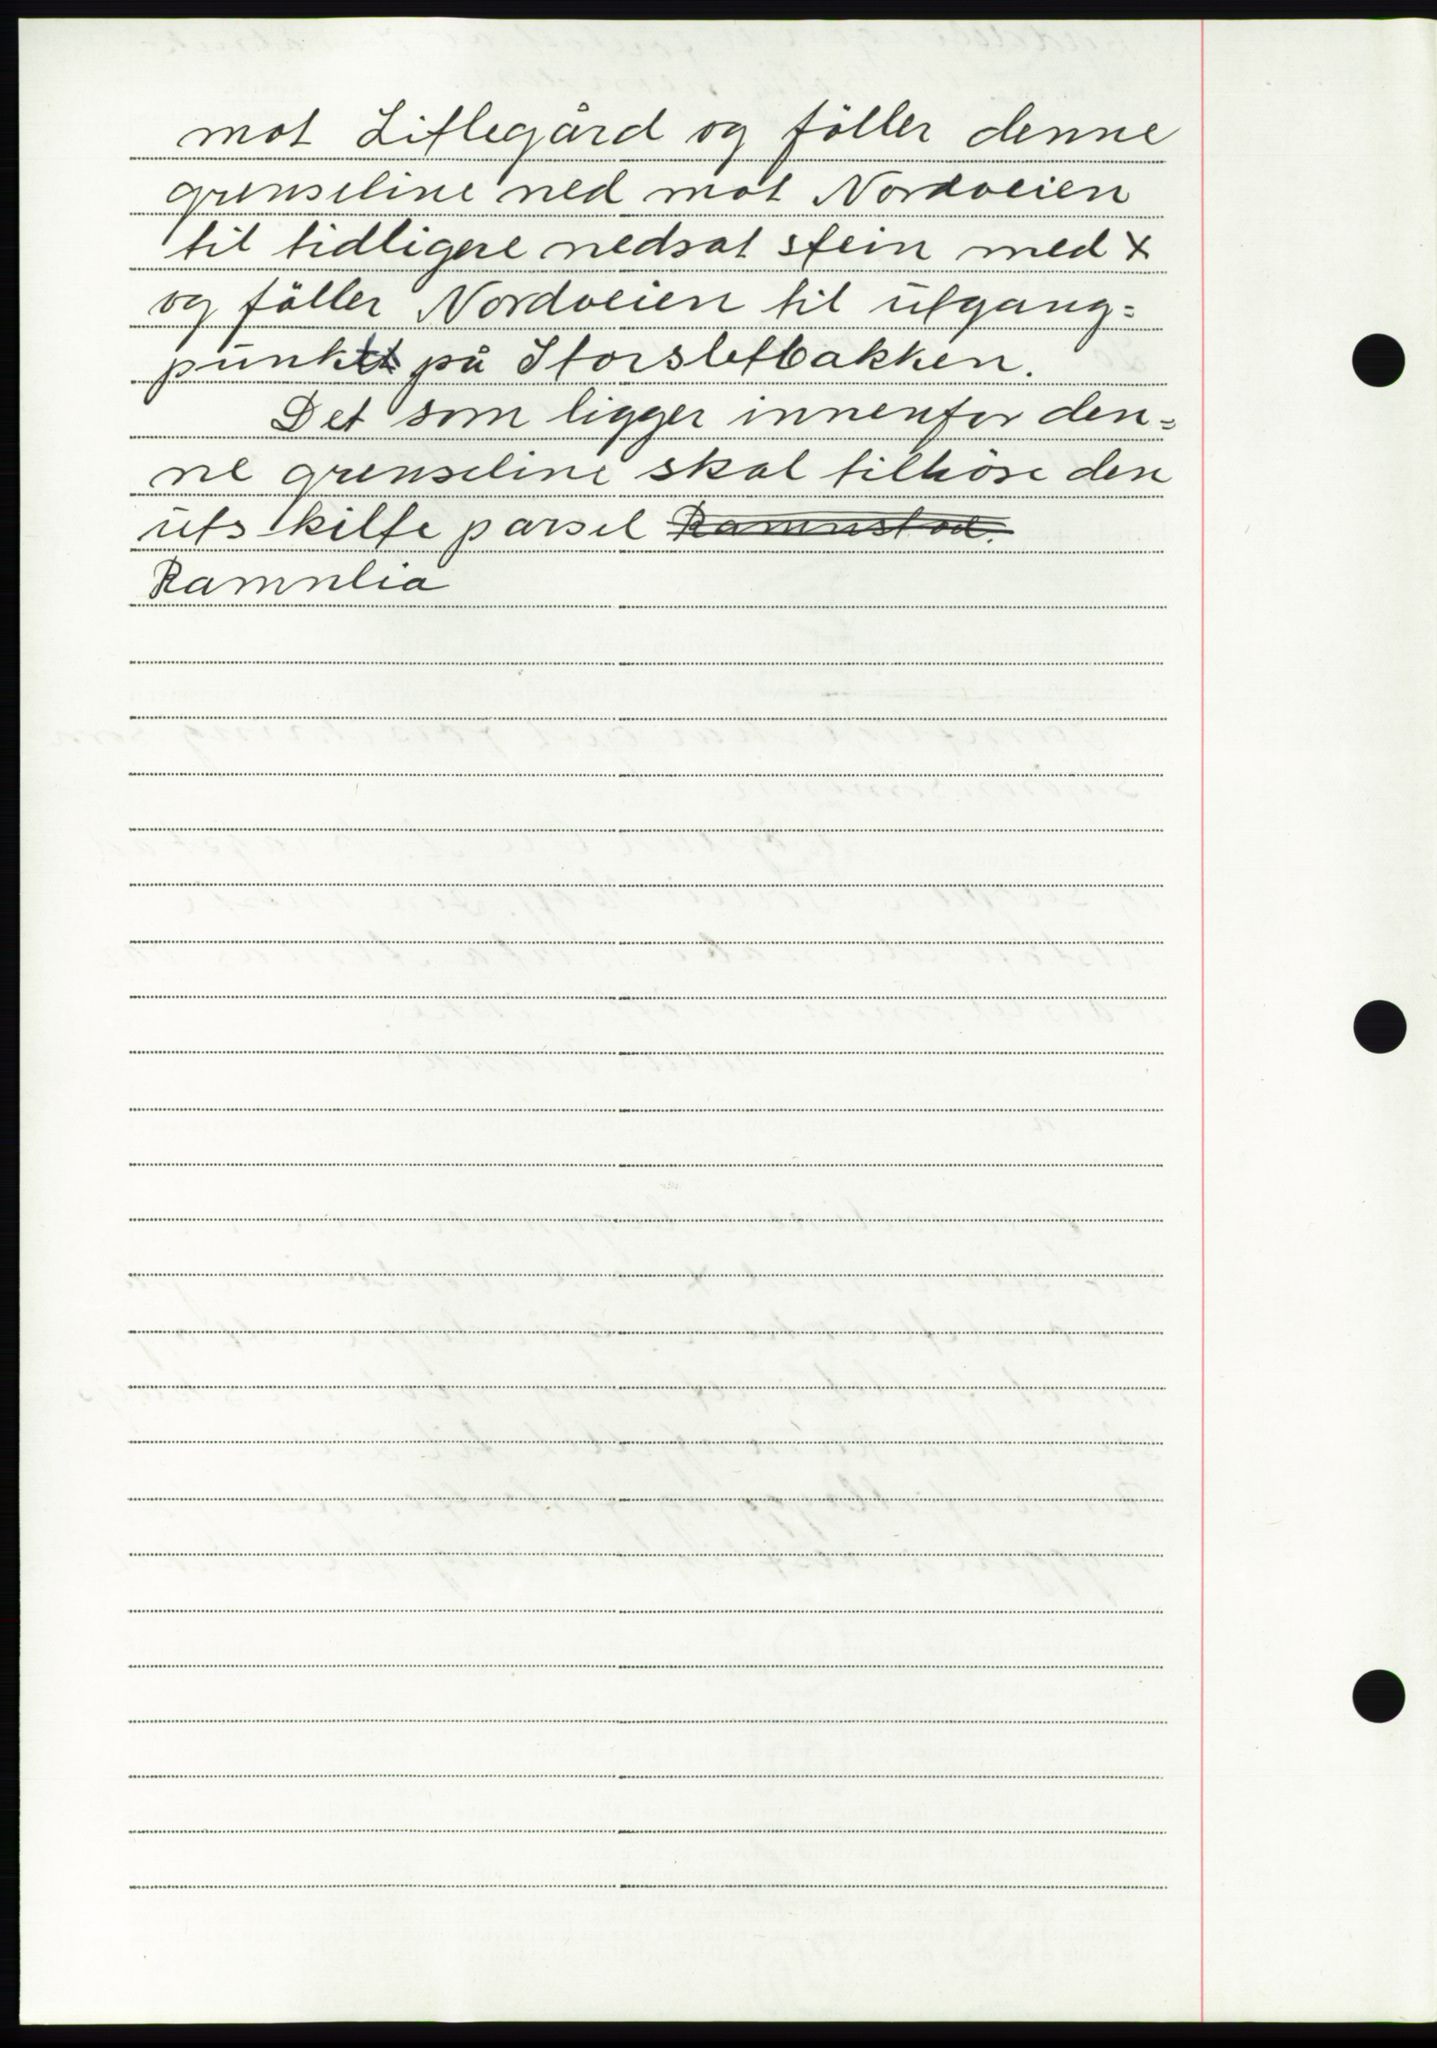 mot Litlegård og föller denne
grenseline ned mot Nordveien
til tidligere nedsat stein med x
og föller Nordveien til utgang=
punkt på Storsletbakken.
Det som ligger innenfor den=
ne grenseline skal tilhöre den
utskilte parsel Ramnstad.
Ramnlia